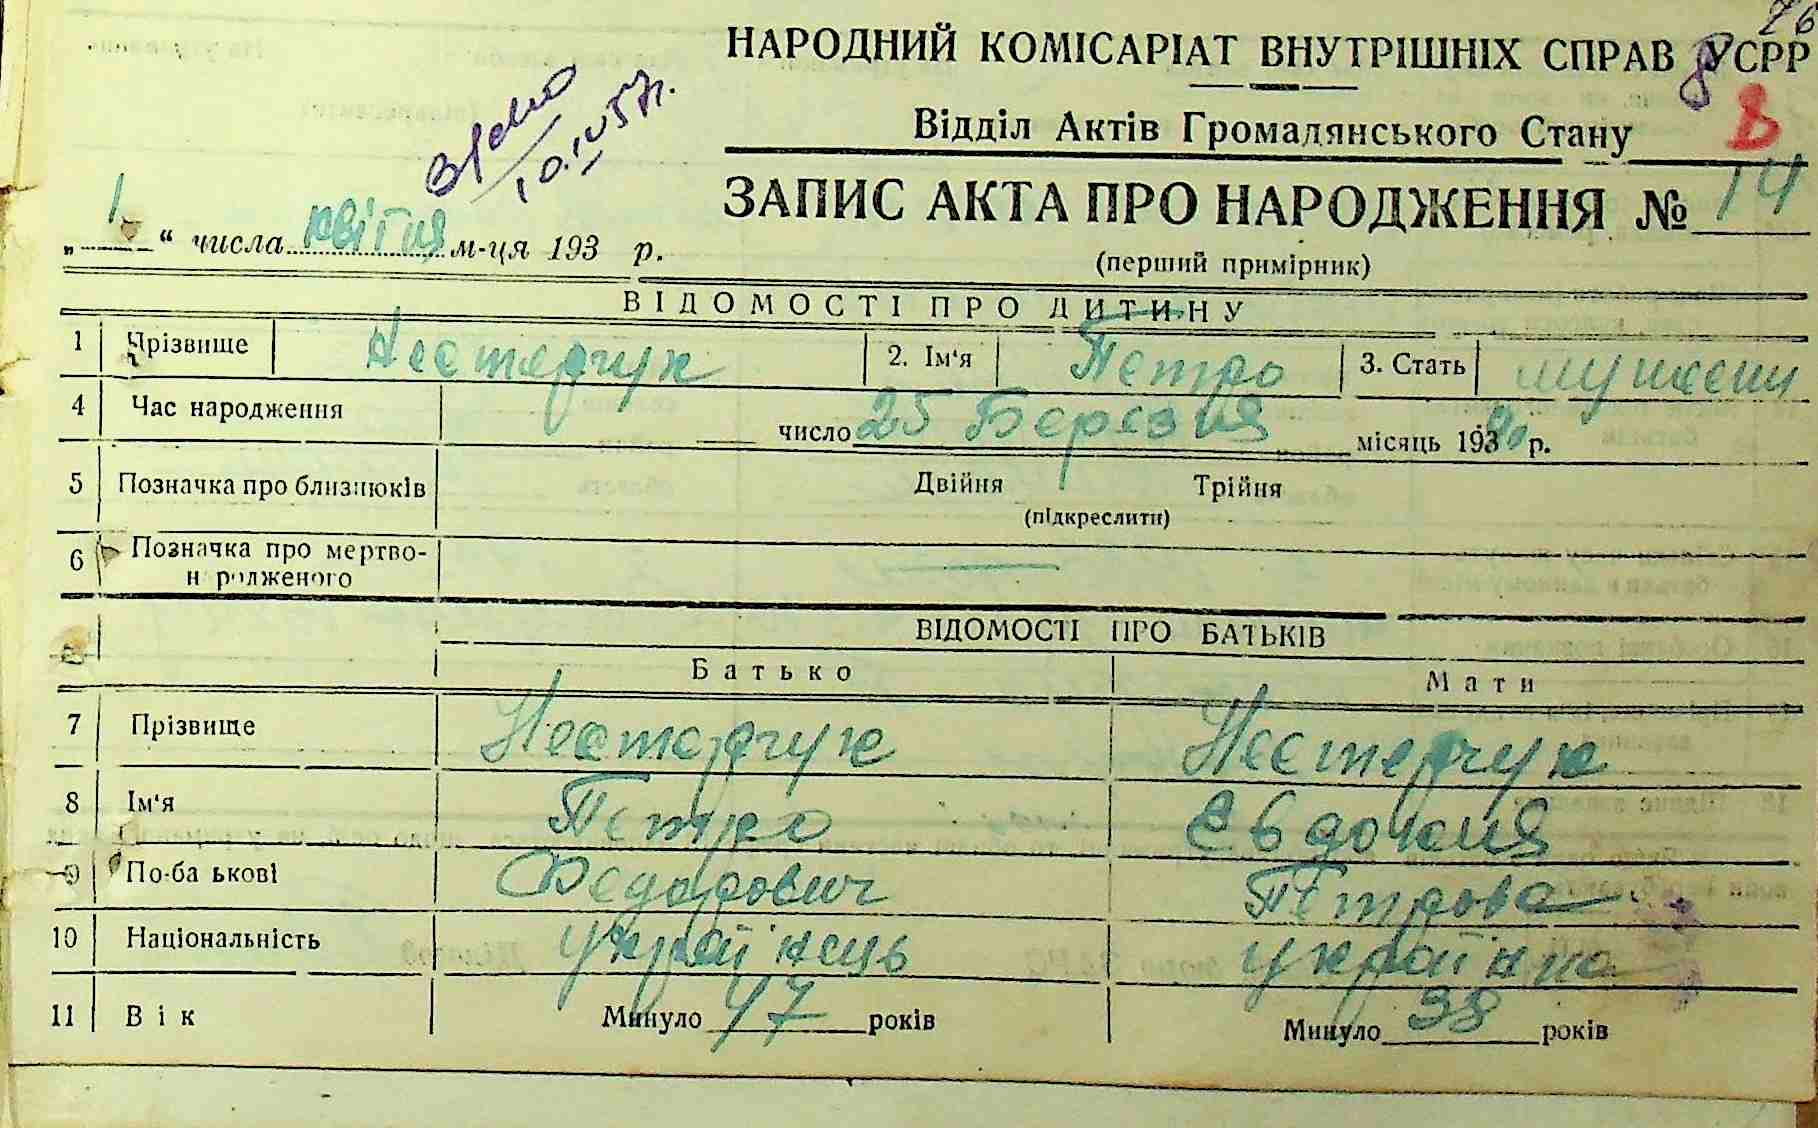 76
НАРОДНИЙ КОМІСАРІАТ ВНУТРІШНІХ СПРАВ УСРР
8
В
Відділ Актів Громадянського Стану
10.IV 57 г.
ЗАПИС АКТА ПРО НАРОДЖЕННЯ № 14
„ 1 “ числа квітня м-ця 193 р.
(перший примірник)
ВІДОМОСТІ ПРО ДИТИНУ
1 Прізвище Нестерчук 2. Ім'я Петро 3. Стать
4 Час народження число 25 Березня місяць 193 р.
5 Позначка про близнюків Двійня Трійня
(підкреслити)
6 Позначка про мертво-
н родженого
ВІДОМОСТІ ПРО БАТЬКІВ
Батько Мати
7 Прізвище Нестерчук Нестерчук
8 Ім'я Петро Євдокия
9 По-ба ькові Федорович Петрова
10 Національність Українець Українка
11 Вік Минуло 47 років Минуло 38 років